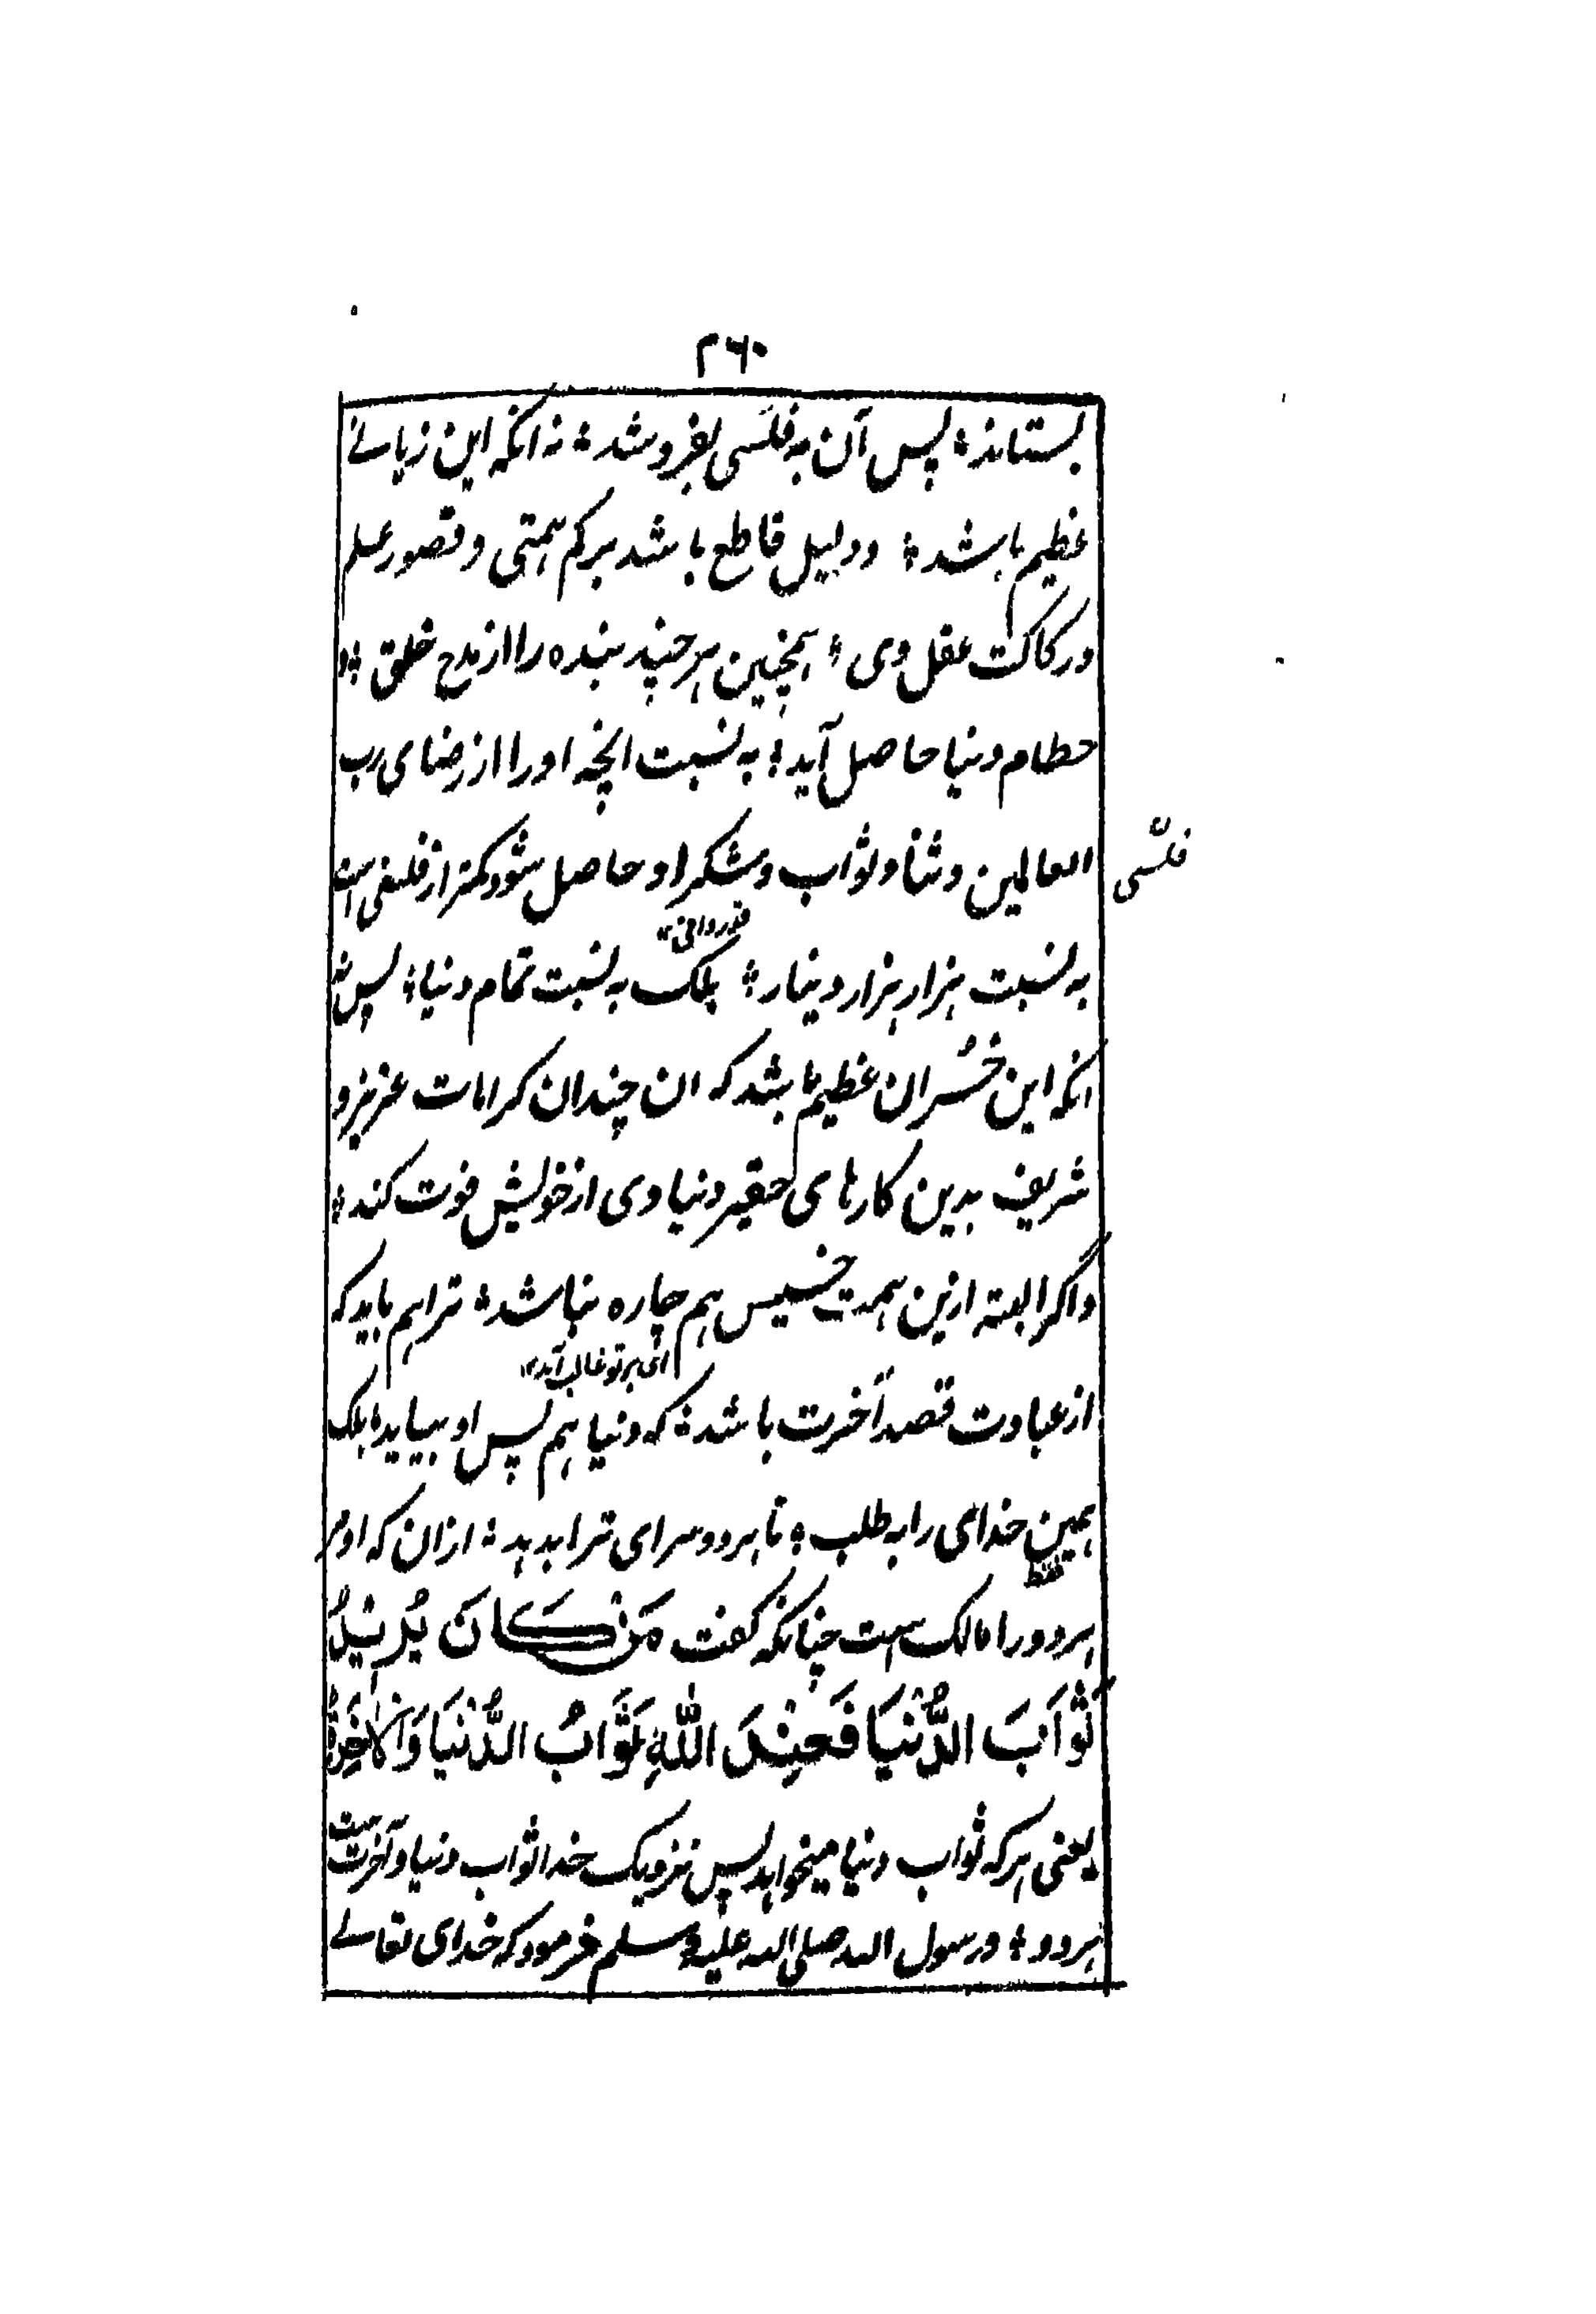 ۲۶۰
بستاند؛ پس آن به فلسی بفروشد؛ نه انکه این زیانے
عظیم باشد؛ ودلیل قاطع باشد برکم همتی و قصور علم
ورکاکت عقل وی؛ همچنین هرچند بنده را از مدح خلق؛ و
حطام دنیا حاصل آید؛ به نسبت انچه او را از رضای رب
العالمین وثنا وثواب وشکر او حاصل شود کمتر از فلسی است
فلسی
فوردانی
به نسبت هزار هزار دینار؛ بلک به نسبت تمام دنیا؛ پس نه
انکه این خُسران عظیم باشد که ان چندان کرامات عزیز و
شریف بدین کارهای حقیر دنیاوی از خویش فوت کند؛
واگر البته ازین همت خسیس هم چاره نباشد؛ ترا هم باید که
ای بر تو غالب آید
از عبادت قصد آخرت باشد؛ که دنیا هم پس او بیاید؛ بلک
همین خدای را به طلب؛ تا هر دو سرای ترا بدهد؛ ازان که او مر
فقط
هردو را مالک ست چنانکه گفت مَنْ كَانَ يُرِيْدُ
ثَوَابَ الدُّنْيَا فَعِنْدَ اللّٰهِ ثَوَابُ الدُّنْيَا وَالْاٰخِرَةِ
یعنی هرکه ثواب دنیا میخواهد پس نزدیک خدا ثواب دنیا وآخرت ست
هردو؛ ورسول الله صلی الله علیه وسلم فرمود که خدای تعالے